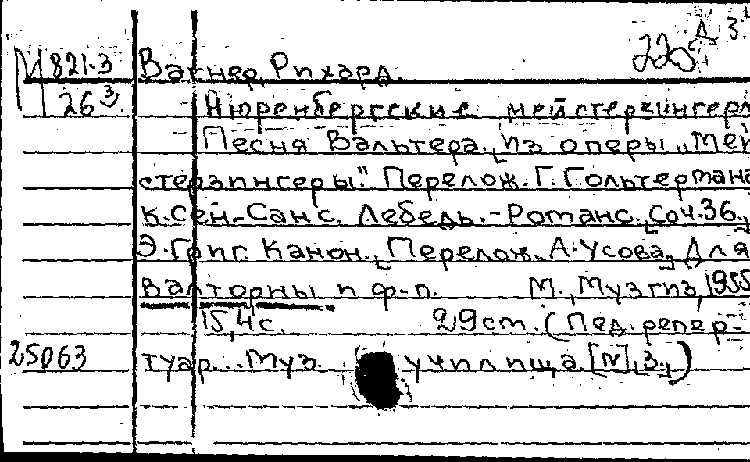 220 Д 3
М 821.3 Вагнер, Рихард.
26 3 Нюренбергские мейстерзингеры
Песня Вальтера, из оперы „Мей
стерзингеры". Перелож. Г. Гольтермана
К. Сен-Санс. Лебедь. - Романс. Соч. 36.,
Э. Григ. Канон., [Перелож. А. Усова] Для
валторны и ф-п. М., Музгиз, 1955
15, 4 с. 29 см. (Пед. репер-
25063 туар... Муз. училища. [N], 3.,)